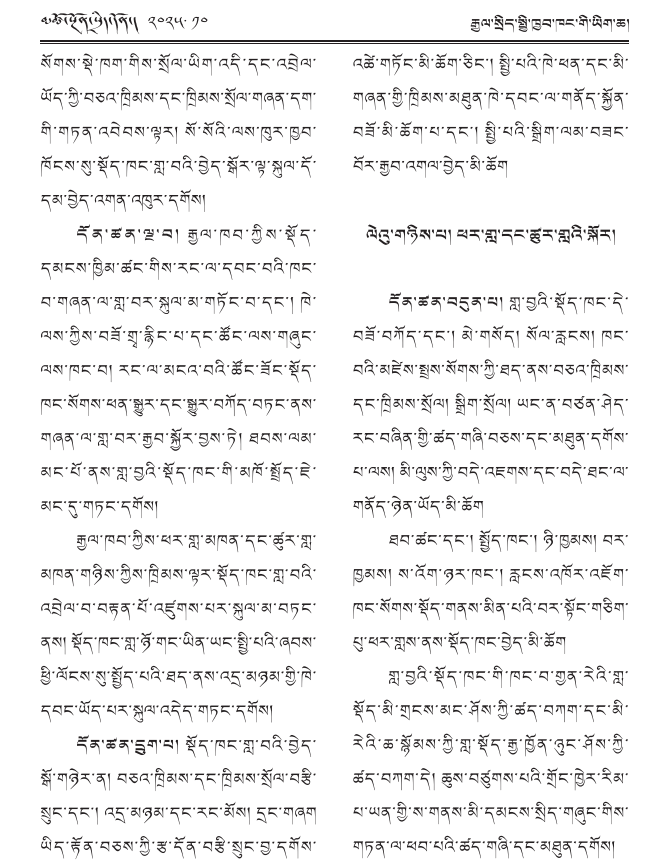 ༄༅།། ༢༠༢༥.༡༠
རྒྱལ་སྲིད་སྤྱི་ཁྱབ་ཁང་གི་ཡིག་ཆ།
སོགས་སྡེ་ཁག་གིས་སྲོལ་ཡིག་འདི་དང་འབྲེལ་
ཡོད་ཀྱི་བཅའ་ཁྲིམས་དང་ཁྲིམས་སྲོལ་གཞན་དག་
གི་གཏན་འབེབས་ལྟར། སོ་སོའི་ལས་ཁུར་ཁྱབ་
ཁོངས་སུ་སྡོད་ཁང་གླ་བའི་བྱེད་སྒོར་ལྟ་སྐུལ་དོ་
དམ་བྱེད་འགན་འཁུར་དགོས།
དོན་ཚན་ལྔ་བ། རྒྱལ་ཁབ་ཀྱིས་སྔོད་
དམངས་ཁྱིམ་ཚང་གིས་རང་ལ་དབང་བའི་ཁང་
བ་གཞན་ལ་གླ་བར་སྐུལ་མ་གཏོང་བ་དང་། ཁེ་
ལས་ཀྱིས་བཟོ་གྲྭ་རྙིང་པ་དང་ཚོང་ལས་གཞུང་
ལས་ཁང་བ། རང་ལ་མངའ་བའི་ཚོང་ཟོང་སྡོད་
ཁང་སོགས་ཕན་སྒྱུར་དང་སྒྱུར་བཀོད་བཏང་ནས་
གཞན་ལ་གླ་བར་རྒྱབ་སྐྱོར་བྱས་ཏེ། ཐབས་ལམ་
མང་པོ་ནས་གླ་བྱའི་སྡོད་ཁང་གི་མཁོ་སྤྲོད་ཇེ་
མང་དུ་གཏང་དགོས།
རྒྱལ་ཁབ་ཀྱིས་ཕར་གླ་མཁན་དང་ཚུར་གླ་
མཁན་གཉིས་ཀྱིས་ཁྲིམས་ལྟར་སྡོད་ཁང་གླ་བའི་
འབྲེལ་བ་བརྟན་པོ་འཛུགས་པར་སྐུལ་མ་བཏང་
ནས། སྡོད་ཁང་གླ་ཉོ་གང་ཡིན་ཡང་སྤྱི་པའི་ཞབས་
ཕྱི་ལོངས་སུ་སྤྱོད་པའི་ཐད་ནས་འདྲ་མཉམ་གྱི་ཁེ་
དབང་ཡོད་པར་སྐུལ་འདེད་གཏང་དགོས།
དོན་ཚན་དྲུག་པ། སྡོད་ཁང་གླ་བའི་བྱེད་
སྒོ་གཉེར་ན། བཅའ་ཁྲིམས་དང་ཁྲིམས་སྲོལ་བརྩི་
སྲུང་དང་། འདྲ་མཉམ་དང་རང་མོས། དྲང་གཞག
ཡིད་རྟོན་བཅས་ཀྱི་རྩ་དོན་བརྩི་སྲུང་བྱ་དགོས་
འཚེ་གཏོང་མི་ཆོག་ཅིང་། སྤྱི་པའི་ཁེ་ཕན་དང་མི་
གཞན་གྱི་ཁྲིམས་མཐུན་ཁེ་དབང་ལ་གནོད་སྐྱོན་
བཟོ་མི་ཆོག་པ་དང་། སྤྱི་པའི་སྒྲིག་ལམ་བཟང་
བོར་རྒྱབ་འགལ་བྱེད་མི་ཆོག
ལེའུ་གཉིས་པ། ཕར་གླ་དང་ཚུར་གླའི་སྐོར།
དོན་ཚན་བདུན་པ། གླ་བྱའི་སྡོད་ཁང་དེ་
བཟོ་བཀོད་དང་། མེ་གསོད། སོལ་རླངས། ཁང་
བའི་མཛེས་སྤྲས་སོགས་ཀྱི་ཐད་ནས་བཅའ་ཁྲིམས་
དང་ཁྲིམས་སྲོལ། སྒྲིག་སྲོལ། ཡང་ན་བཙན་ཤེད་
རང་བཞིན་གྱི་ཚད་གཞི་བཅས་དང་མཐུན་དགོས་
པ་ལས། མི་ལུས་ཀྱི་བདེ་འཇགས་དང་བདེ་ཐང་ལ་
གནོད་ཉེན་ཡོད་མི་ཆོག
ཐབ་ཚང་དང་། སྤྱོད་ཁང་། ཉི་ཁྱམས། བར་
ཁྱམས། ས་འོག་ཉར་ཁང་། རླངས་འཁོར་འཇོག་
ཁང་སོགས་སྡོད་གནས་མིན་པའི་བར་སྟོང་གཅིག་
པུ་ཕར་གླས་ནས་སྡོད་ཁང་བྱེད་མི་ཆོག
གླ་བྱའི་སྡོད་ཁང་གི་ཁང་བ་གྲན་རེའི་གླ་
སྡོད་མི་གྲངས་མང་ཤོས་ཀྱི་ཚད་བཀག་དང་མི་
རེའི་ཆ་སྙོམས་ཀྱི་གླ་སྡོད་རྒྱ་ཁྱོན་ཉུང་ཤོས་ཀྱི་
ཚད་བཀག་དེ། ཆུས་བཙུགས་པའི་གྲོང་ཁྱེར་རིམ་
པ་ཡན་གྱི་ས་གནས་མི་དམངས་སྲིད་གཞུང་གིས་
གཏན་ལ་ཕབ་པའི་ཚད་གཞི་དང་མཐུན་དགོས།